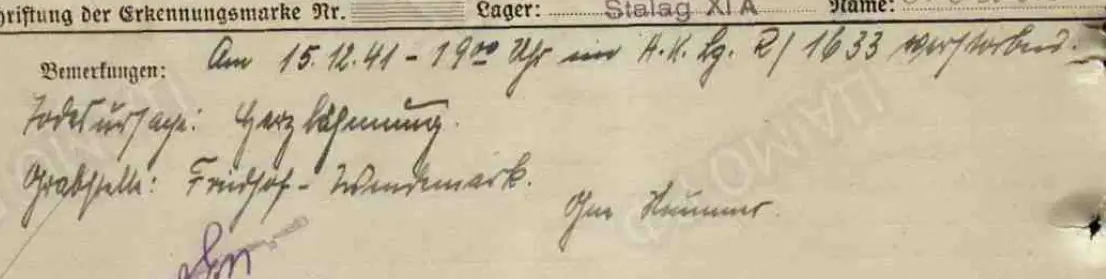 hriftung der Erkennungsmarke Nr. Lager: Stalag XI A Name:
Bemerkungen: Am 15.12.41 - 19⁰⁰ Uhr im A.K. Lg. R/1633 verstorben.
Todesursache: Herzlähmung.
Grabstelle: Friedhof - Wendemark.
Nummer.